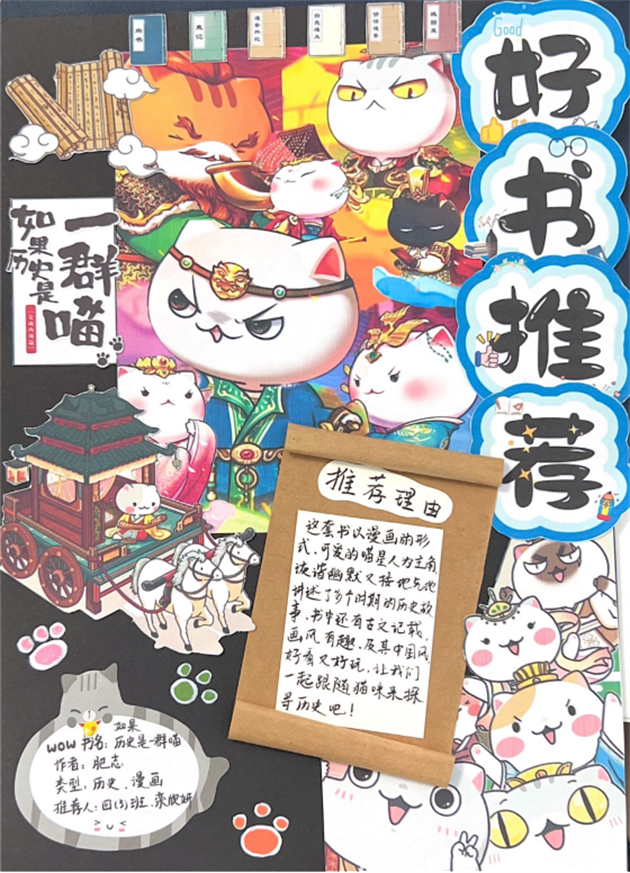 Good
好
书
推
荐
如果
历史是
一群
喵
推荐理由
这套书以漫画的形
式,可爱的喵星人为主角
诙谐幽默又接地气地
讲述了各个时期的历史故
事,书中还有古文记载,
画风有趣,及其中国风,
好看又好玩,让我们
一起跟随猫咪来探
寻历史吧!
如果
wow 书名:历史是一群喵
作者:肥志
类型:历史、漫画
推荐人:四(3)班